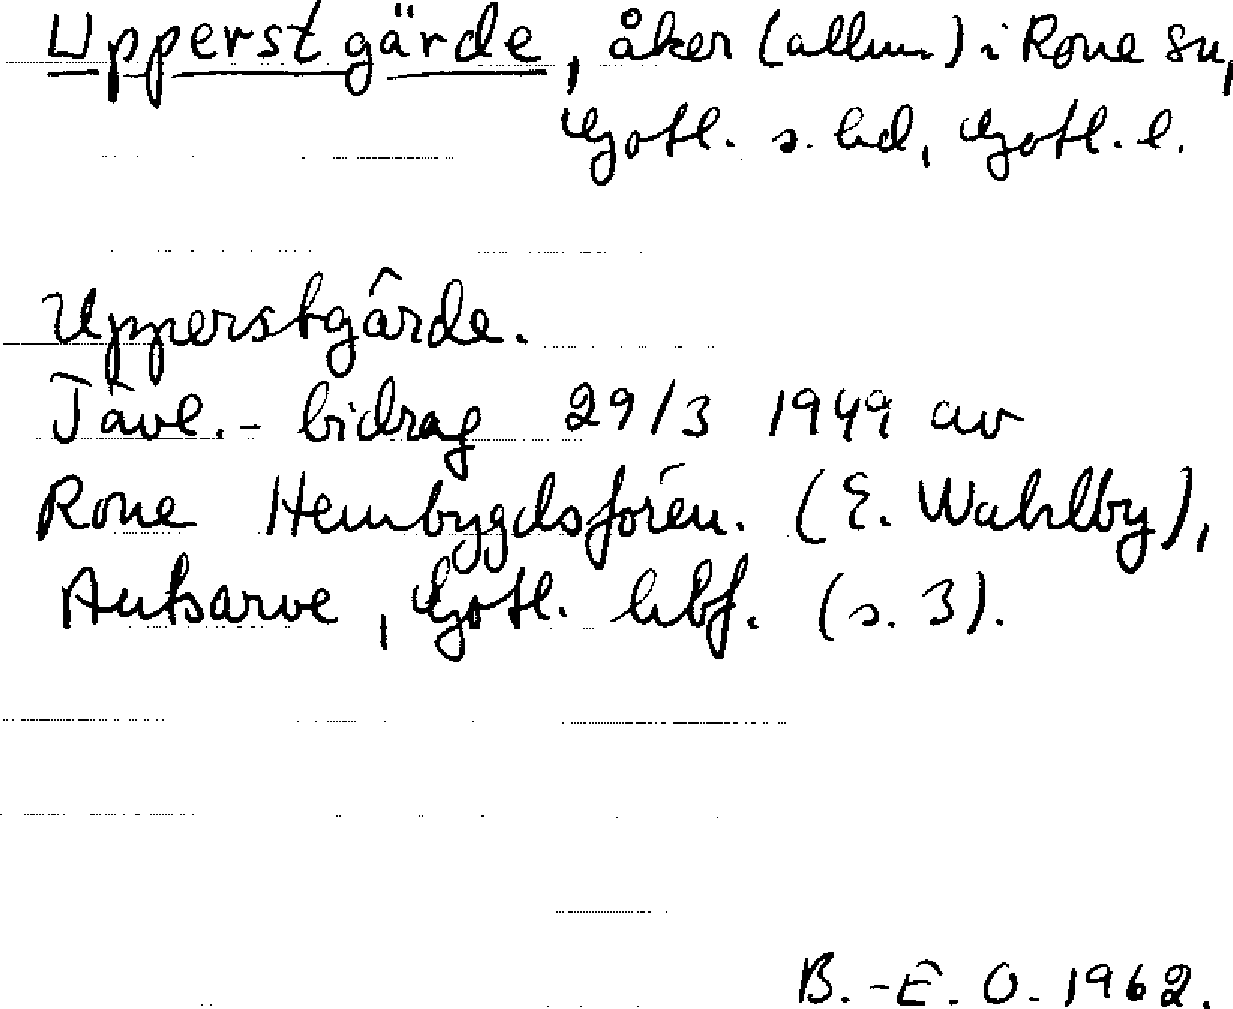 Upperst gärde, åker (allm.) i Rone sn,
Gotl. s. hd, Gotl. l.
Upperstgärde.
Tävl.- bidrag 29/3 1949 av
Rone Hembygdsfören. (E. Wahlby),
Autsarve, Gotl. hbf. (s. 3).
B.-E. O. 1962.